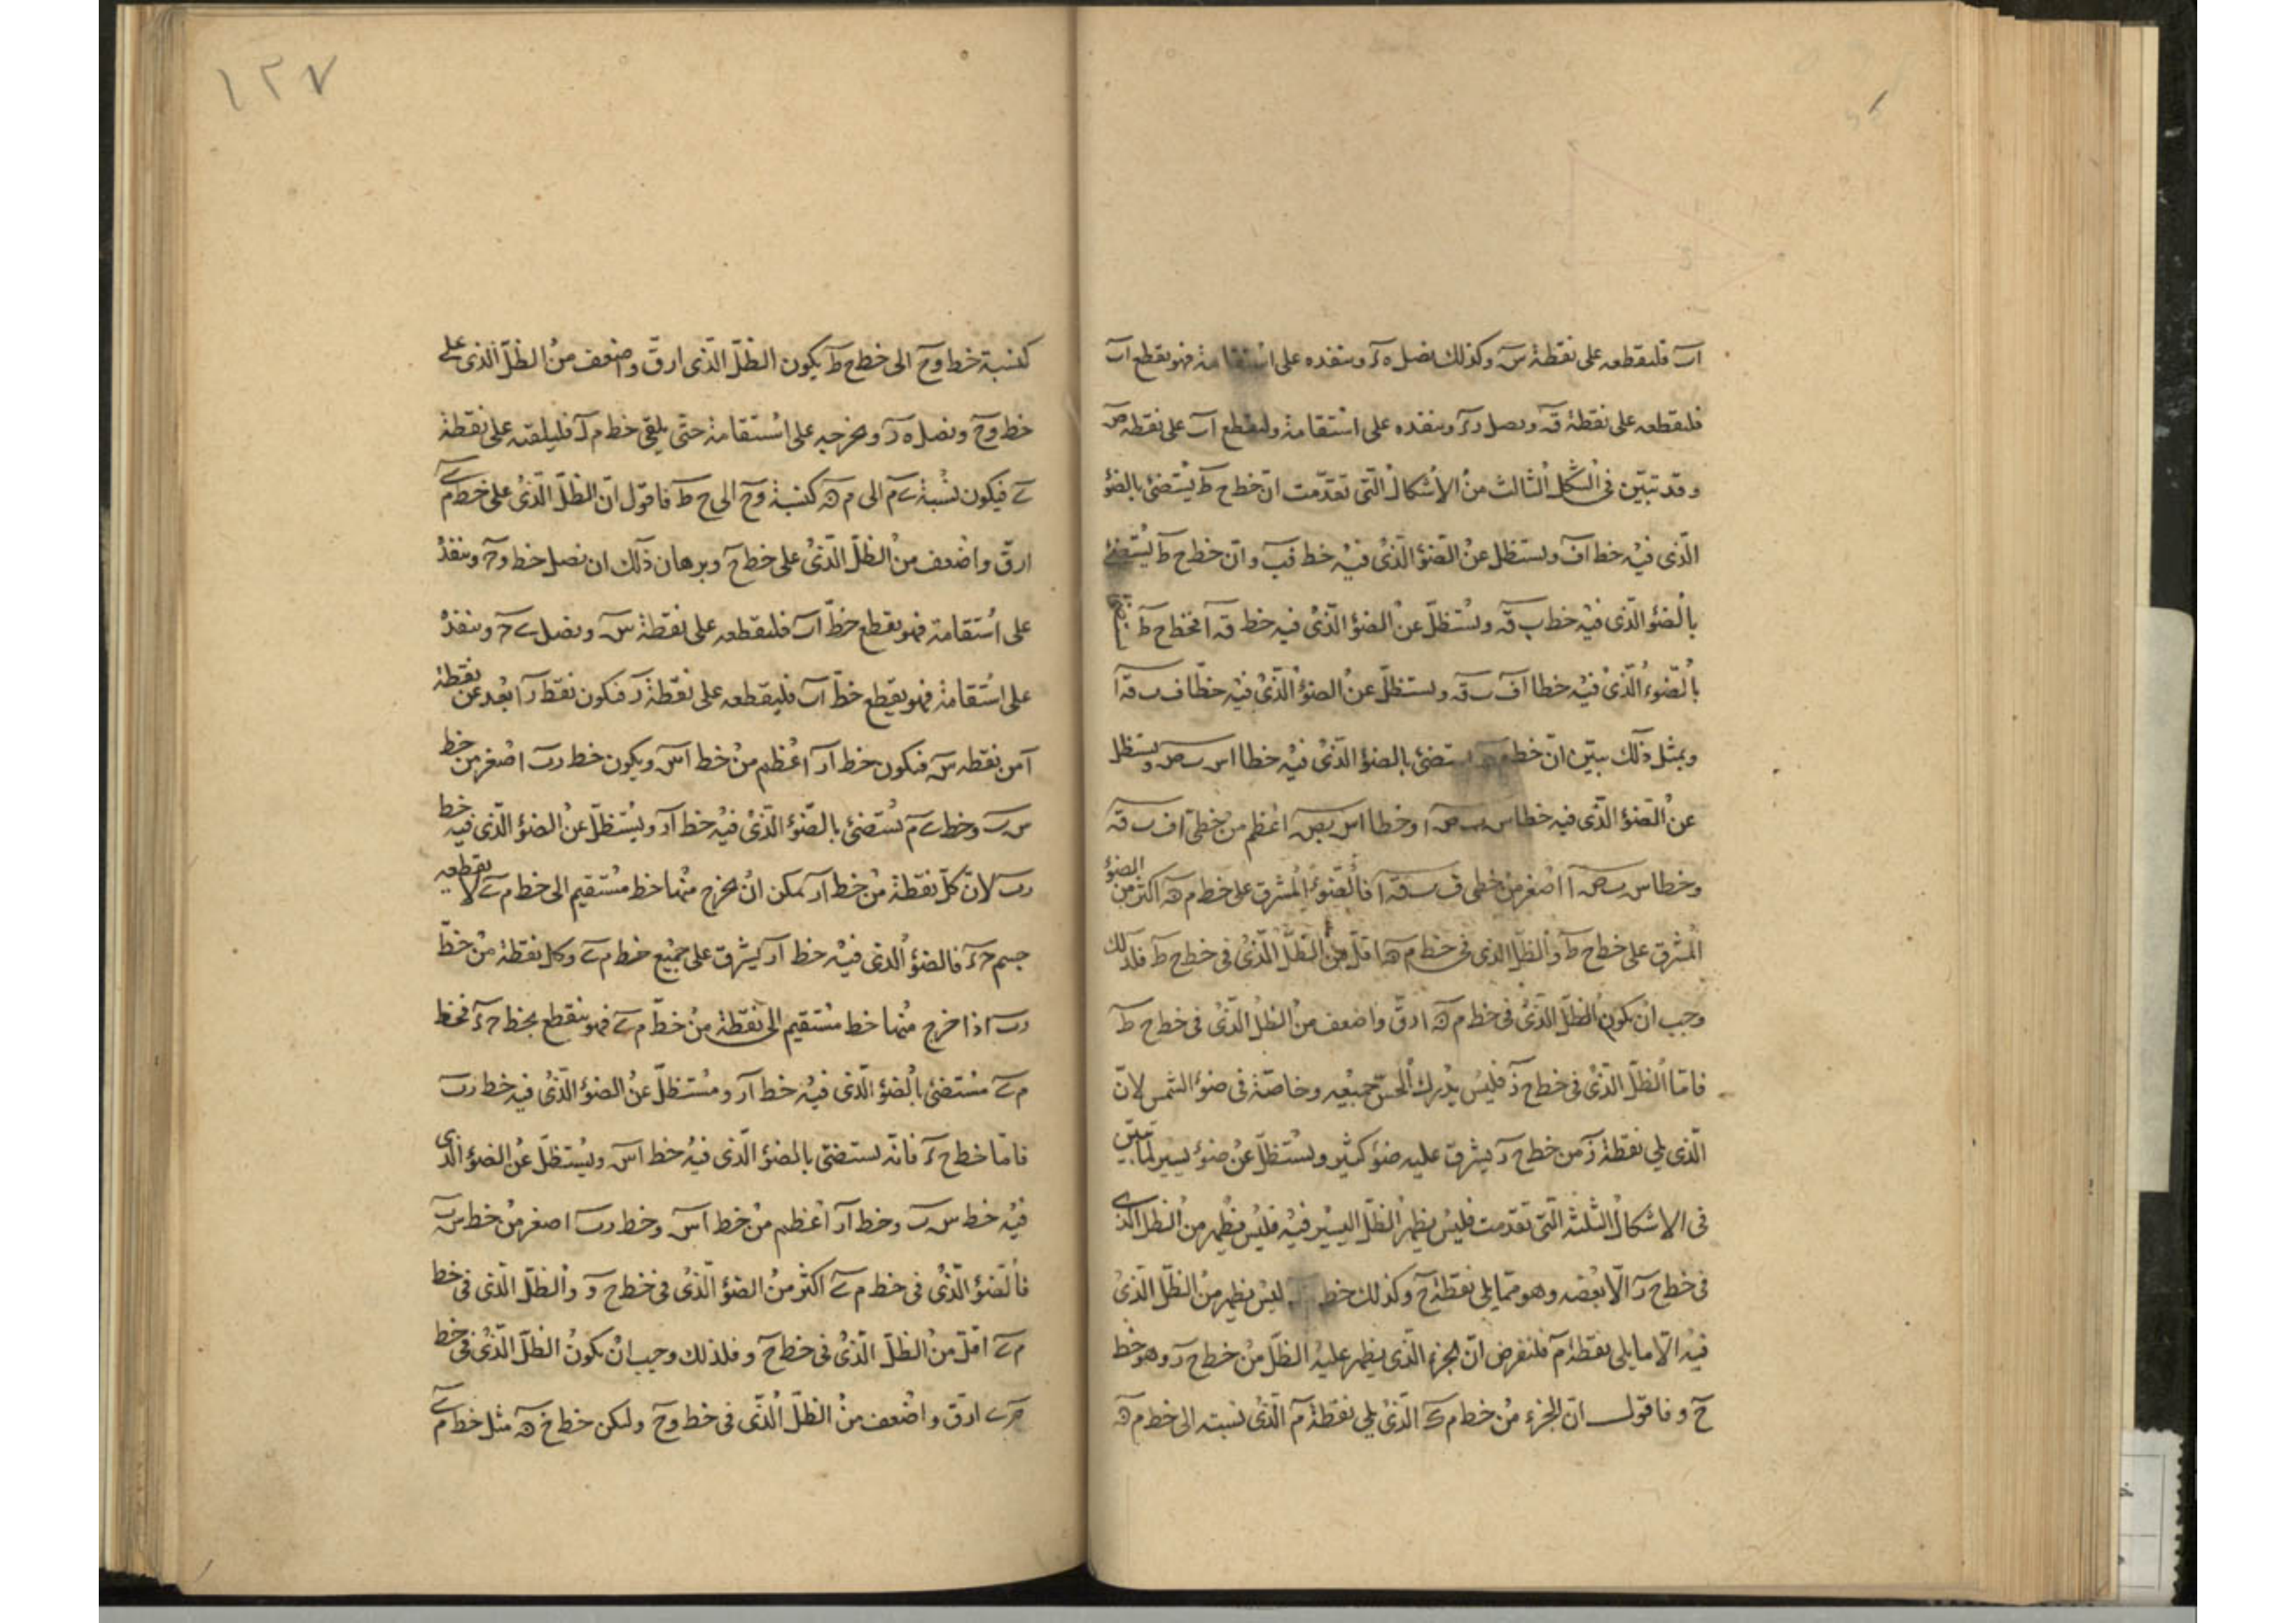 اب فليقطعه على نقطة س وكذلك نصل ه ء وننفذه على استقامة فهو يقطع اب
فليقطعه على نقطة ق ونصل ر ء وننفذه على استقامة وليقطع اب على نقطة ص
وقد تبيّن فى الشكل الثالث من الأشكال التى تقدّمت ان خط ح ط يستضئ بالضؤ
الّذى فيه خط اف ويستظل عن الضؤ الّذى فيه خط فب وانّ خط ح ط يستضئ
بالضؤ الّذى فيه خط ب ق ويستظلّ عن الضؤ الّذى فيه خط ق ا فخط ح ط
بالضوء الّذى فيه خطا اف ب ق ويستظلّ عن الضوء الّذى فيه خطّا ف ب ق ا
وبمثل ذلك يبيّن انّ خط يستضئ بالضؤ الّذى فيه خطا اس ب ص ويستظل
عن الضؤ الّذى فيه خطا س ب ص ا وخطا اس ب ص اعظم من خطى اف ب ق
وخطا س ب ص ا اصغر من خطى ف ب ق ا فالضوء المشرق على خط م ه اكثر من الضوء
المشرق على خط ح ط والظلّ الذى فى خط م ه اقلّ من الظلّ الّذى فى خط ح ط فلذلك
وجب ان يكون الظلّ الّذى فى خط م ه ارقّ واضعف من الظل الّذى فى خط ح ط
فامّا الظلّ الّذى فى خط ح ر فليس يدرك الحسّ جميعه وخاصّة فى ضوء الشمس لانّ
الّذى يلى نقطة ر من خط ح ر يشرق عليه ضؤ كثير ويستظلّ عن ضوء يسير لما تبيّن
فى الاشكال الثلثة الّتى تقدّمت فليس يظهر الظلّ اليسير فيه فليس يظهر من الظل الذى
فى خط ح ر الّا بعضه وهو ممّا يلى نقطة ح وكذلك خط ليس يظهر من الظلّ الّذى
فيه الّا ما يلى نقطة م فلنفرض انّ الجزء الّذى يظهر عليه الظلّ من خط ح ر وهو خط
ح و فاقول انّ الجزء من خط م ك الّذى يلى نقطة م الّذى نسبته الى خط م ه
١٢٧
كنسبة خط و ح الى خط ح ط يكون الظلّ الّذى ارقّ واضعف من الظلّ الّذى على
خط و ح ونصل ه ر ونخرجه على استقامة حتى يلقى خط م ك فليلقه على نقطة
ى فيكون نسبة ى م الى م ه كنسبة و ح الى ح ط فاقول انّ الظلّ الّذى على خط م ى
ارقّ واضعف من الظلّ الّذى على خط ح و برهان ذلك ان نصل خط و ء وننفذه
على استقامة فهو يقطع خطّ اب فليقطعه على نقطة س ونصل ى ء وننفذه
على استقامة فهو يقطع خطّ اب فليقطعه على نقطة ر فيكون نقطة ر ابعد عن نقطة
ا من نقطه س فيكون خط ار اعظم من خط اس ويكون خط رب اصغر من خط
س ب وخط ى م يستضئ بالضؤ الّذى فيه خط ار ويستظلّ عن الضؤ الّذى فيه خط
رب لانّ كلّ نقطة من خط ار يمكن ان يخرج منها خط مستقيم الى خط م ى لا يقطعه
جسم ح ء فالضؤ الّذى فيه خط ار يشرق على جميع خط م ى وكل نقطة من خطّ
رب اذا خرج منها خط مستقيم الى نقطة من خطّ م ى فهو ينقطع بخط ح ء فخط
م ى مستضئ بالضؤ الّذى فيه خط ار ومستظلّ عن الضؤ الّذى فيه خط رب
فامّا خط ح و فانّه يستضئ بالضؤ الّذى فيه خط اس ويستظلّ عن الضؤ الّذى
فيه خط س ب وخط ار اعظم من خط اس وخط رب اصغر من خط س ب
فالضؤ الّذى فى خط م ى اكثر من الضؤ الّذى فى خط ح و والظلّ الّذى فى خط
م ى اقلّ من الظلّ الّذى فى خط ح و فلذلك وجب ان يكون الظلّ الّذى فى خط
م ى ارقّ واضعف من الظلّ الّذى فى خط و ح وليكن خط خ ه مثل خط م ى